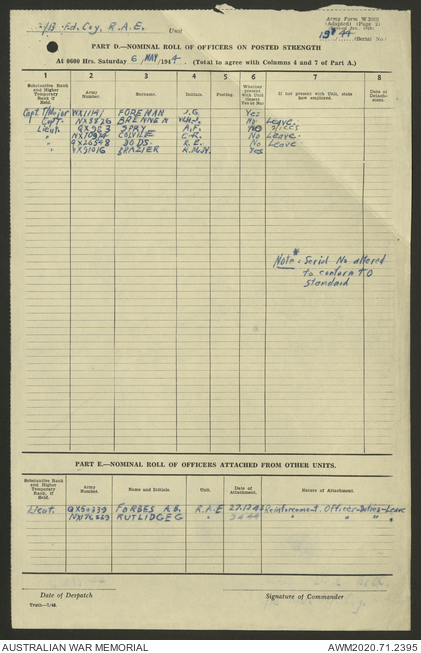 2/13 Fd. Coy. R.A.E. Unit
Army Form W 3008
(Adapted) (Page 2)
(Serial No.)
PART D.—NOMINAL ROLL OF OFFICERS ON POSTED STRENGTH
At 0600 Hrs. Saturday 6 MAY /194 4. (Total to agree with Columns 4 and 7 of Part A.)
1 2 3 4 5 6 7 8
Substantive Rank and Higher Temporary Rank if Held. Army Number. Surname. Initials. Posting. Whether present with Unit (insert Yes or No) If not present with Unit, state how employed. Date of Detachment.
Capt. T/Major FOREMAN J.G. Yes
Capt. NX8826 BRENNEN No Leave.
Lieut. SPRY A.F.
" COLVILE C.R. No Leave.
" QX26548 DODS R.E. No Leave.
" VX91016 BRAZIER R.M.N. Yes
Note * = Serial No altered
to conform to
standard
PART E.—NOMINAL ROLL OF OFFICERS ATTACHED FROM OTHER UNITS.
Substantive Rank and Higher Temporary Rank, if Held. Army Number. Name and Initials. Unit. Date of Attachment. Nature of Attachment.
Lieut. QX50339 FORBES R.B. R.A.E 27.12.43 Reinforcement Officer-Duties-Leave
" RUTLIDGE G " " " "
Date of Despatch
Signature of Commander
Truth—7/43.
AUSTRALIAN WAR MEMORIAL
AWM2020.71.2395